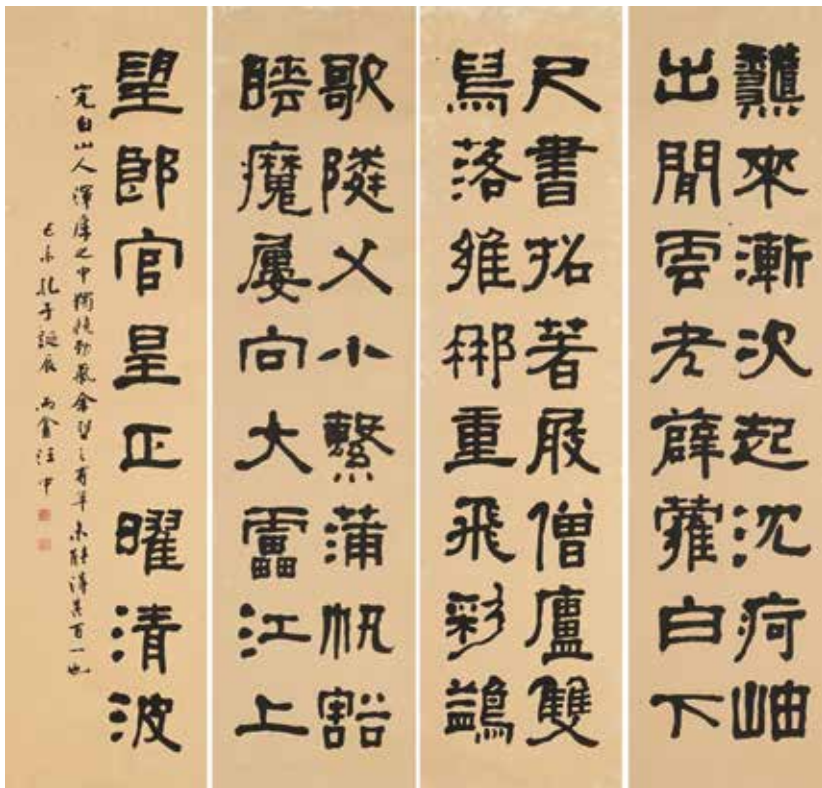 來漸次起沈疴岫
出閒雲老薜蘿白下
尺書招著屐僧廬雙
舄落維那重飛彩鷁
歌隣父小繫蒲帆豁
睡魔屢向大靁江上
望郎官星正曜清波
完白山人渾厚之中獨饒勁氣余習之有年未能得其百一也
己未孔子誕辰 雨盦汪中